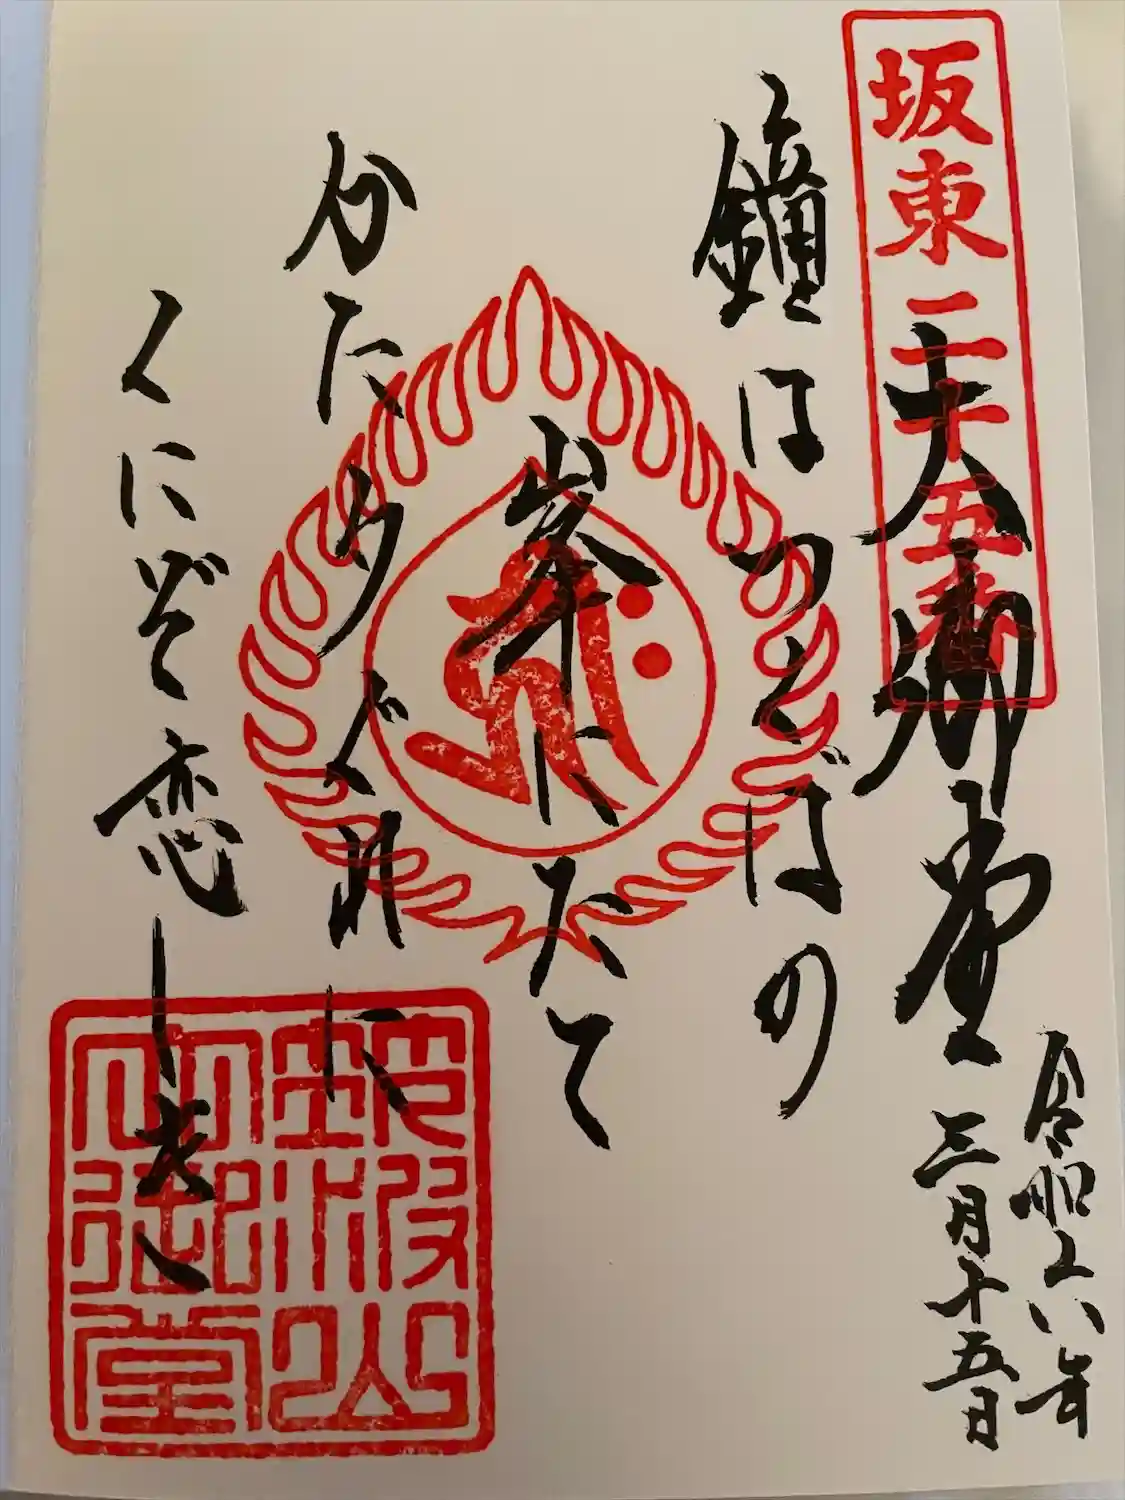 坂東二十五番
大御堂
鐘はつくばの
峯にたて
かた夕ぐれに
くにぞ恋しき
令和六年
三月十五日
筑波山
大御堂